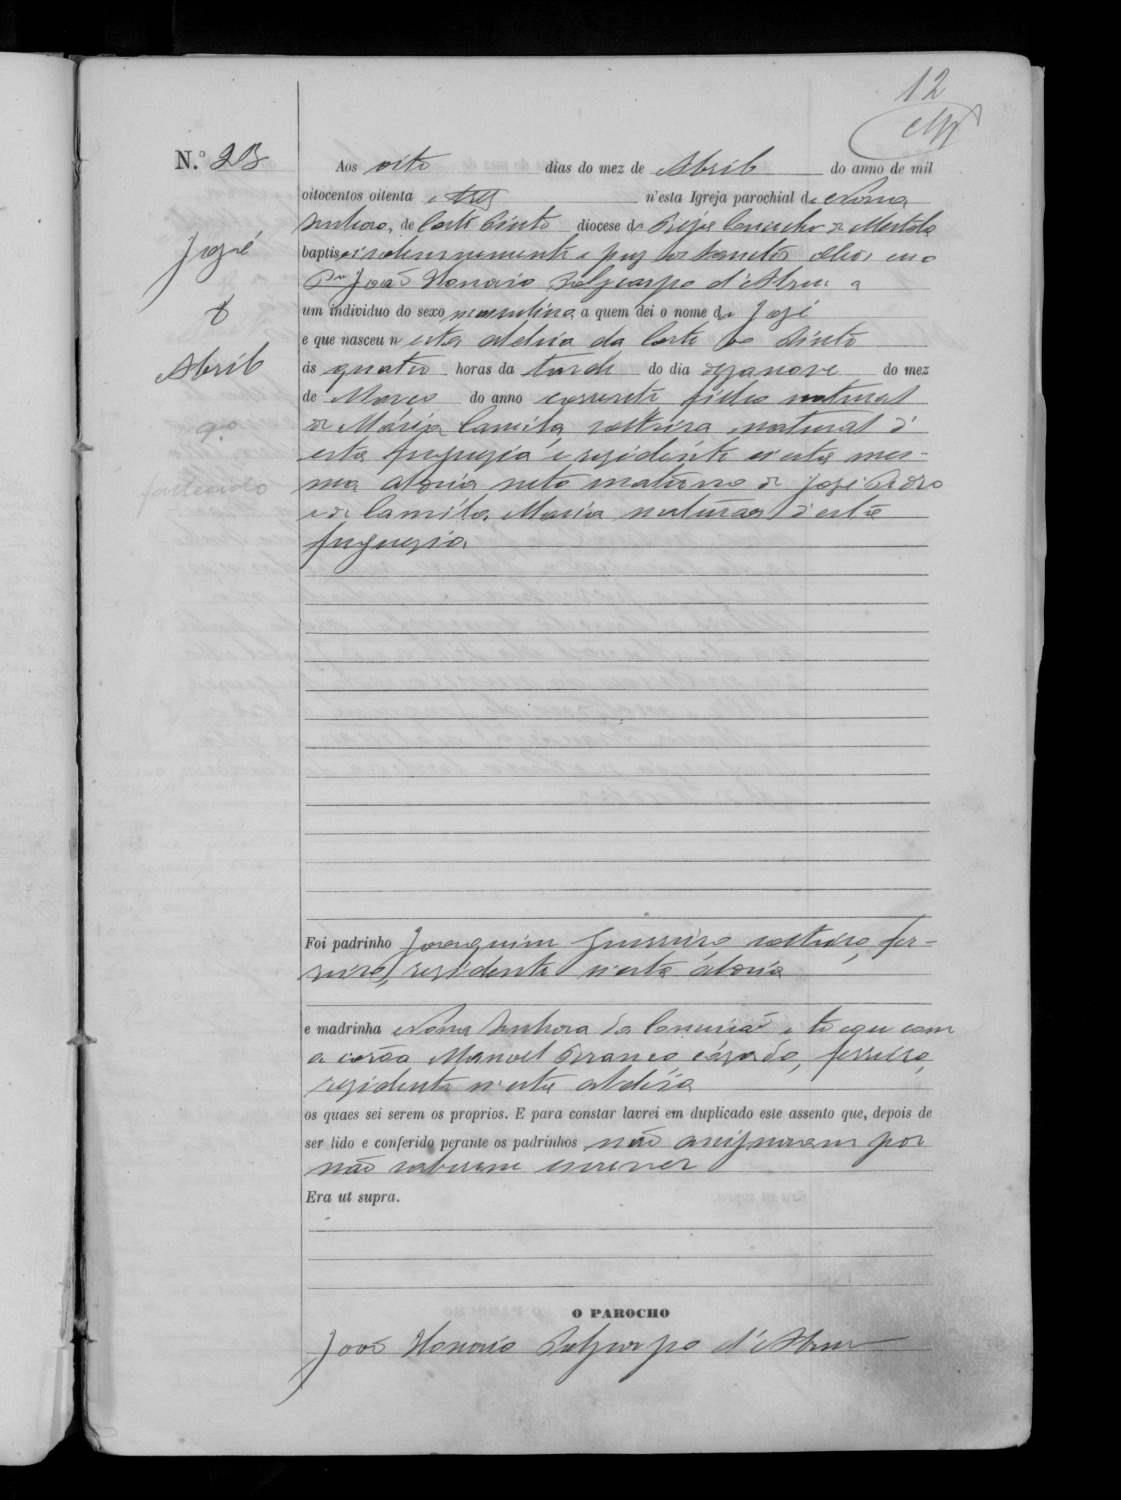 12
N.º 23
José
8
Abril
Aos oito dias do mez de Abril do anno de mil
oitocentos oitenta e tres n'esta Igreja parochial de Nossa
Senhora, de Corte Pinto diocese de Beja Concelho de Mertola
baptisei solemnemente e puz os Sanctos Oleos eu o
P.e João Honorio Policarpo d'Abreu a
um individuo do sexo masculino a quem dei o nome de José
e que nasceu n'esta aldeia da Corte do Pinto
ás quatro horas da tarde do dia dezanove do mez
de Março do anno corrente filho natural
de Maria Camila solteira natural d'
esta freguezia e rezidente n'esta mes-
ma aldeia neto materno de José Pedro
e de Camila Maria naturaes d'esta
freguezia
Foi padrinho Joaquim Guerreiro, solteiro, fer-
reiro, rezidente n'esta aldeia
e madrinha Nossa Senhora da Conceição e tocou com
a corôa Manoel Franco, cazado, ferreiro,
rezidente n'esta aldeia
os quaes sei serem os proprios. E para constar lavrei em duplicado este assento que, depois de
ser lido e conferido perante os padrinhos não assignaram por
não saberem escrever
Era ut supra.
O PAROCHO
João Honorio Policarpo d'Abreu